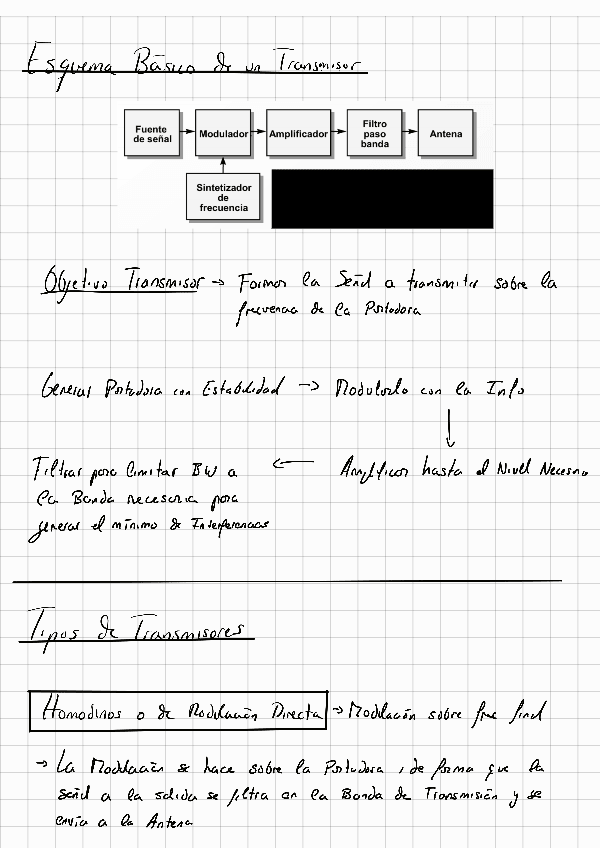 Esquema Básico de un Transmisor
Fuente de señal
Modulador
Amplificador
Filtro paso banda
Antena
Sintetizador de frecuencia
Objetivo Transmisor → Formar la Señal a transmitir sobre la
frecuencia de la Portadora
General Portadora con Estabilidad → Modularla con la Info
↓
Filtrar para limitar BW a ← Amplificar hasta el Nivel Necesario
la Banda necesaria para
generar el mínimo de Interferencias
Tipos de Transmisores
Homodinos o de Modulación Directa → Modulación sobre frec final
→ La Modulación se hace sobre la Portadora, de forma que la
señal a la salida se filtra en la Banda de Transmisión y se
envía a la Antena